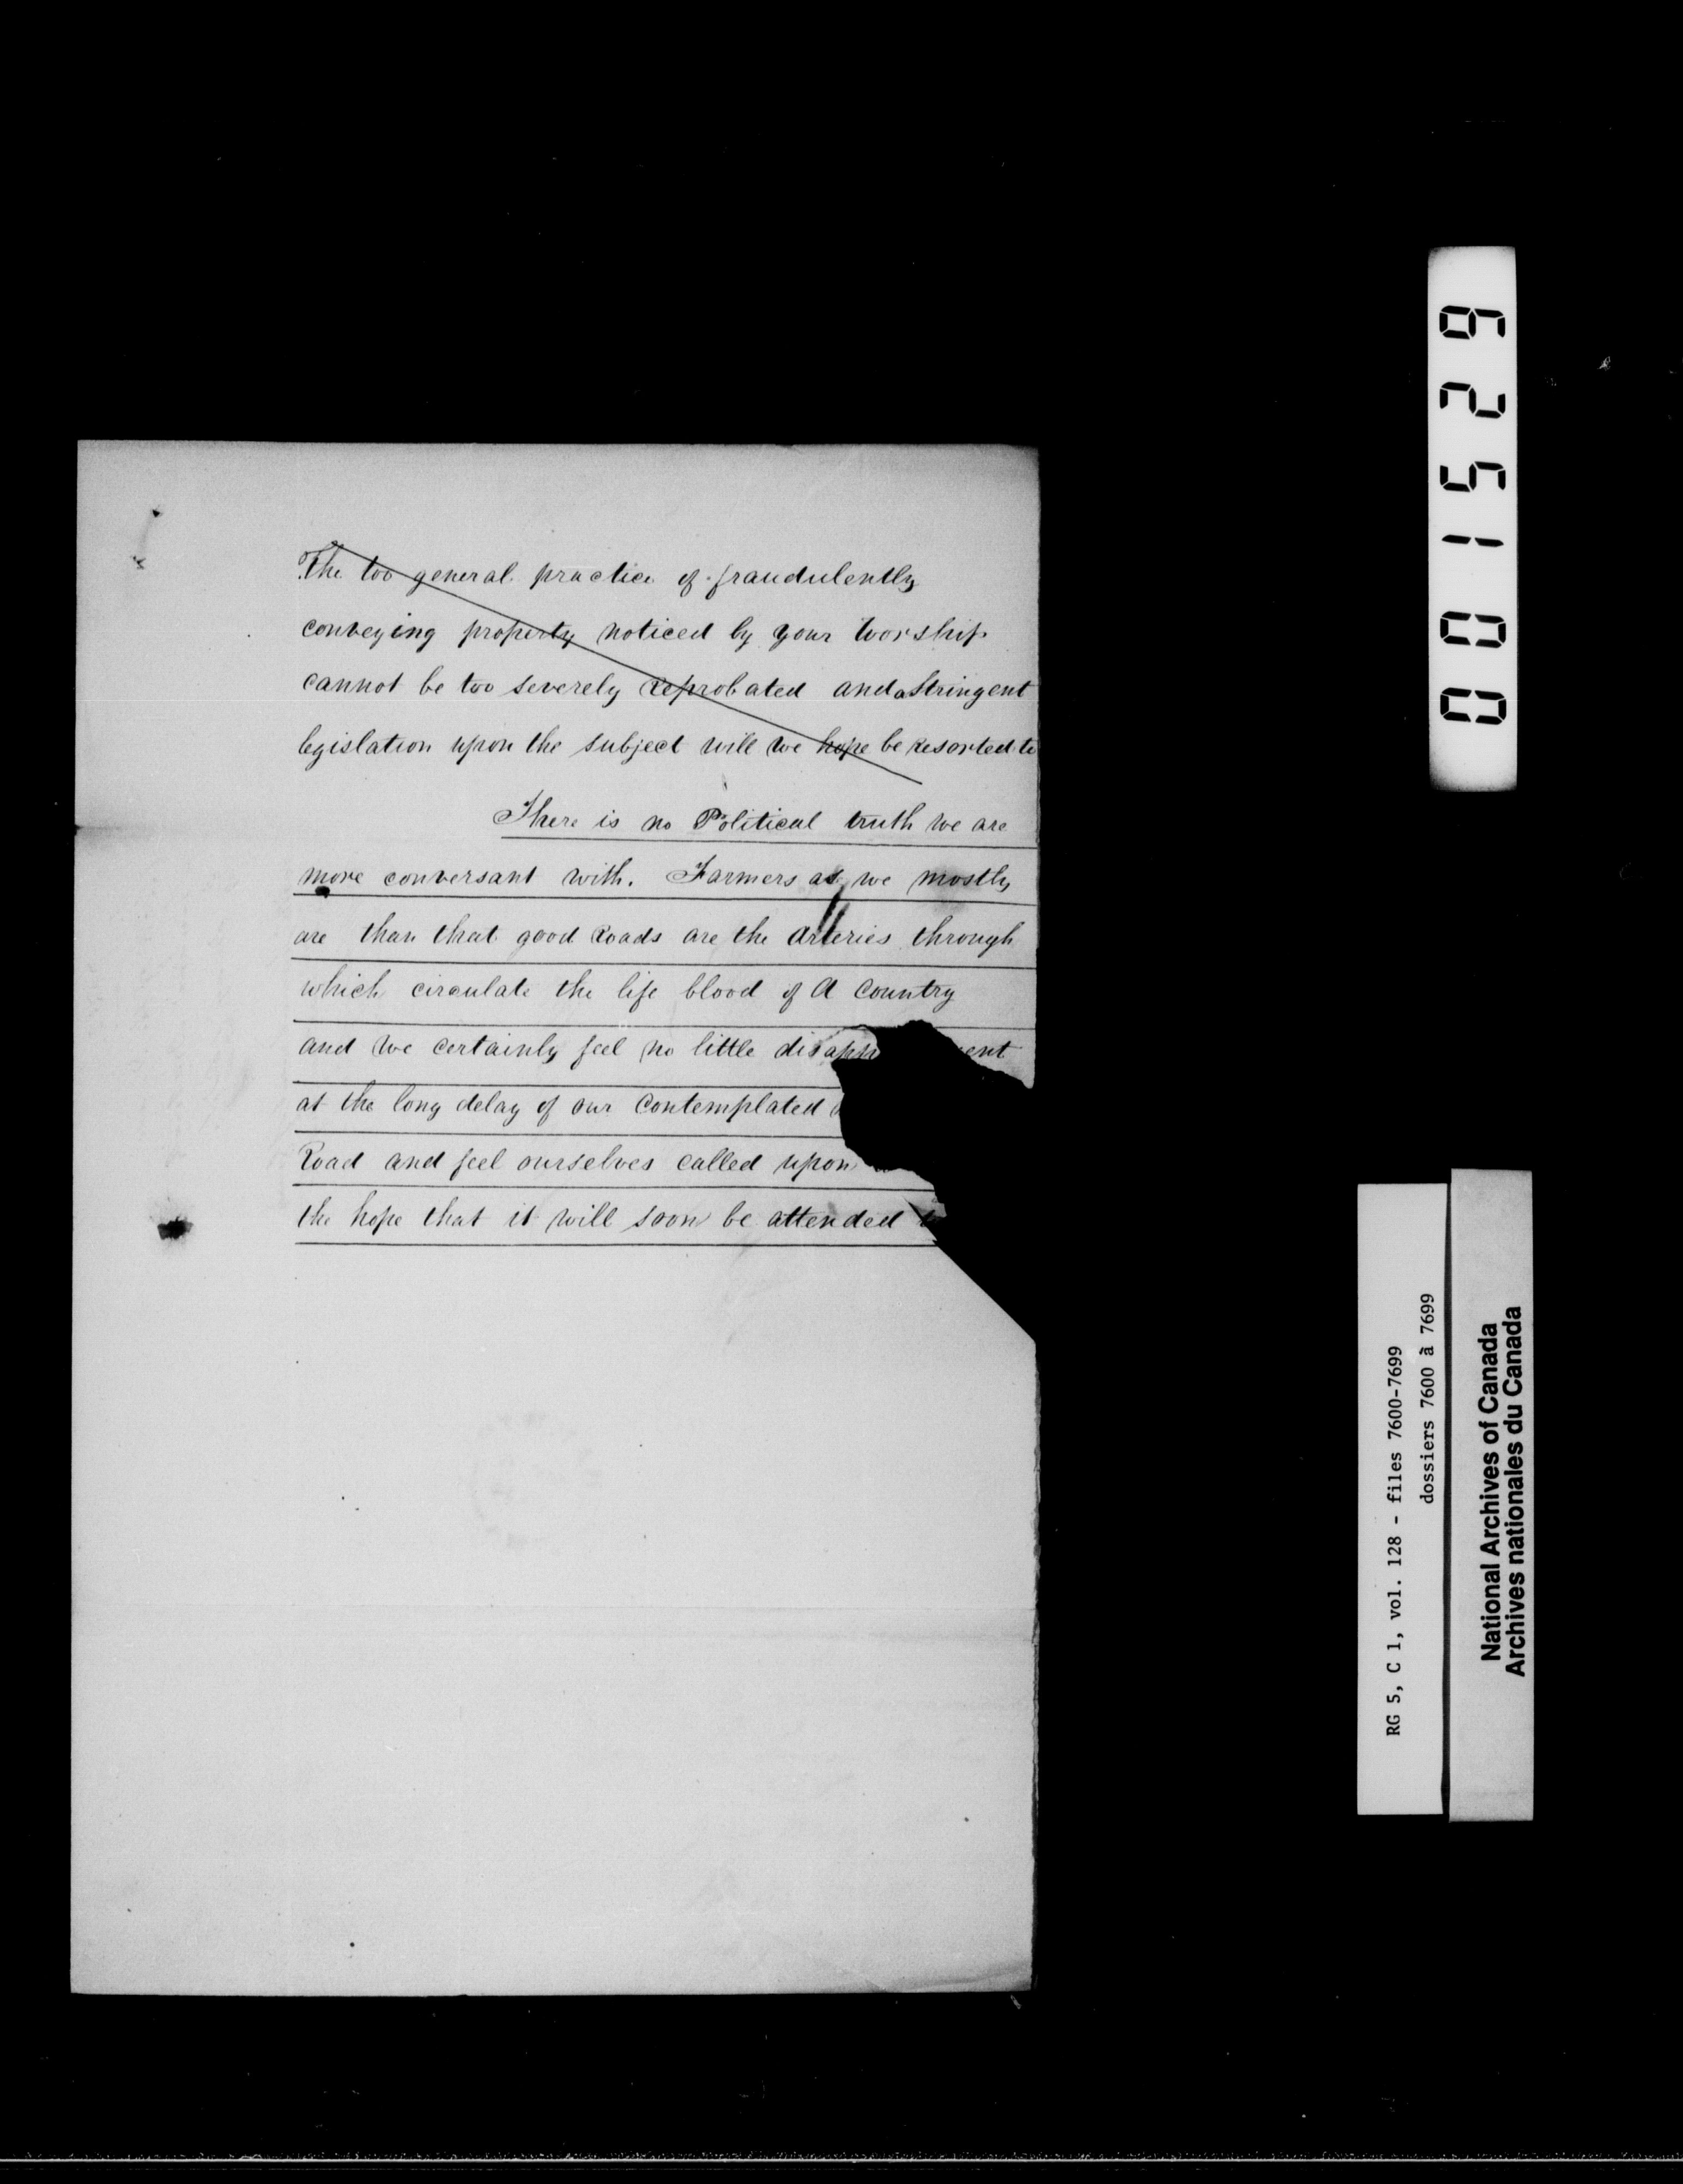 The too general practice of fraudulently
conveying property noticed by your Worship
cannot be too severely reprobated and a Stringent
legislation upon the subject will we hope be Resorted to
There is no Political truth we are
more conversant with. Farmers as we mostly
are than that good Roads are the Arteries through
which circulate the life blood of A Country
and we certainly feel no little disapp ent
at the long delay of our Contemplated
Road and feel ourselves called upon
the hope that it will soon be attended
001529
RG 5, C 1, vol. 128 - files 7600-7699
dossiers 7600 à 7699
National Archives of Canada
Archives nationales du Canada